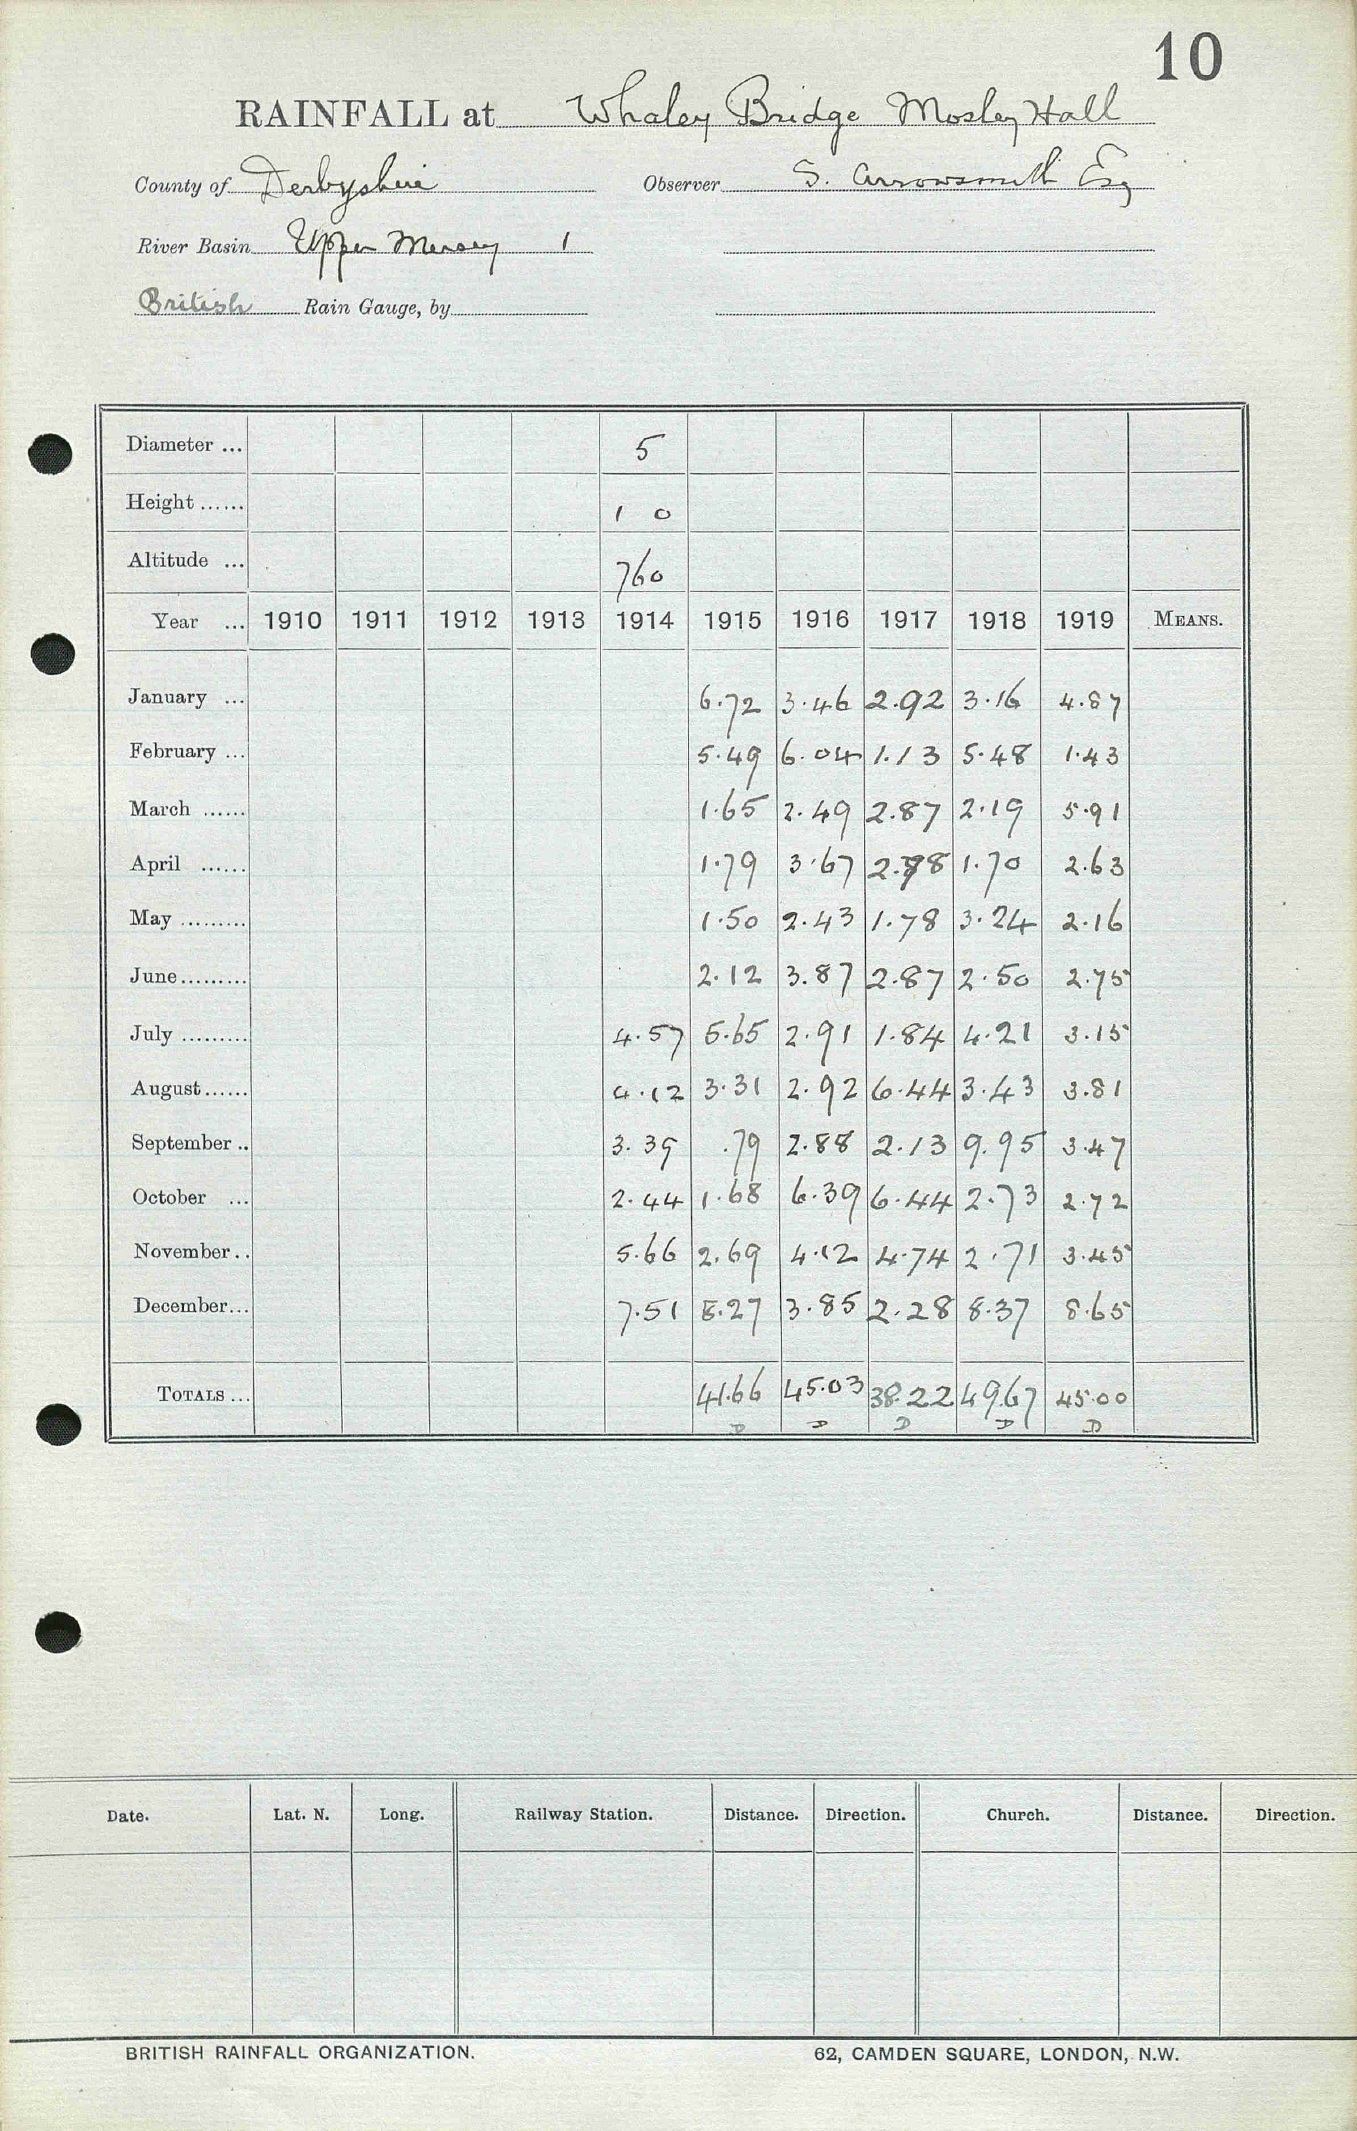 10
RAINFALL at Whaley Bridge Mosley Hall
County of Derbyshire Observer S. Arrowsmith Esq
River Basin Upper Mersey 1
British Rain Gauge, by
Diameter ... 5
Height ...... 1 0
Altitude ... 760
Year ... 1910 1911 1912 1913 1914 1915 1916 1917 1918 1919 MEANS.
January ... 6.72 3.46 2.92 3.16 4.87
February ... 5.49 6.04 1.13 5.48 1.43
March ...... 1.65 2.49 2.87 2.19 5.91
April ...... 1.79 3.67 2.78 1.70 2.63
May ......... 1.50 2.43 1.78 3.24 2.16
June......... 2.12 3.87 2.87 2.50 2.75
July ......... 4.57 5.65 2.91 1.84 4.21 3.15
August...... 4.12 3.31 2.92 6.44 3.43 3.81
September .. 3.39 .79 2.88 2.13 9.95 3.47
October ... 2.44 1.68 6.39 6.44 2.73 2.72
November.. 5.66 2.69 4.12 4.74 2.71 3.45
December... 7.51 8.27 3.85 2.28 8.37 8.65
TOTALS ... 41.66 45.03 38.22 49.67 45.00
D D D D D
Date. Lat. N. Long. Railway Station. Distance. Direction. Church. Distance. Direction.
BRITISH RAINFALL ORGANIZATION. 62, CAMDEN SQUARE, LONDON, N.W.